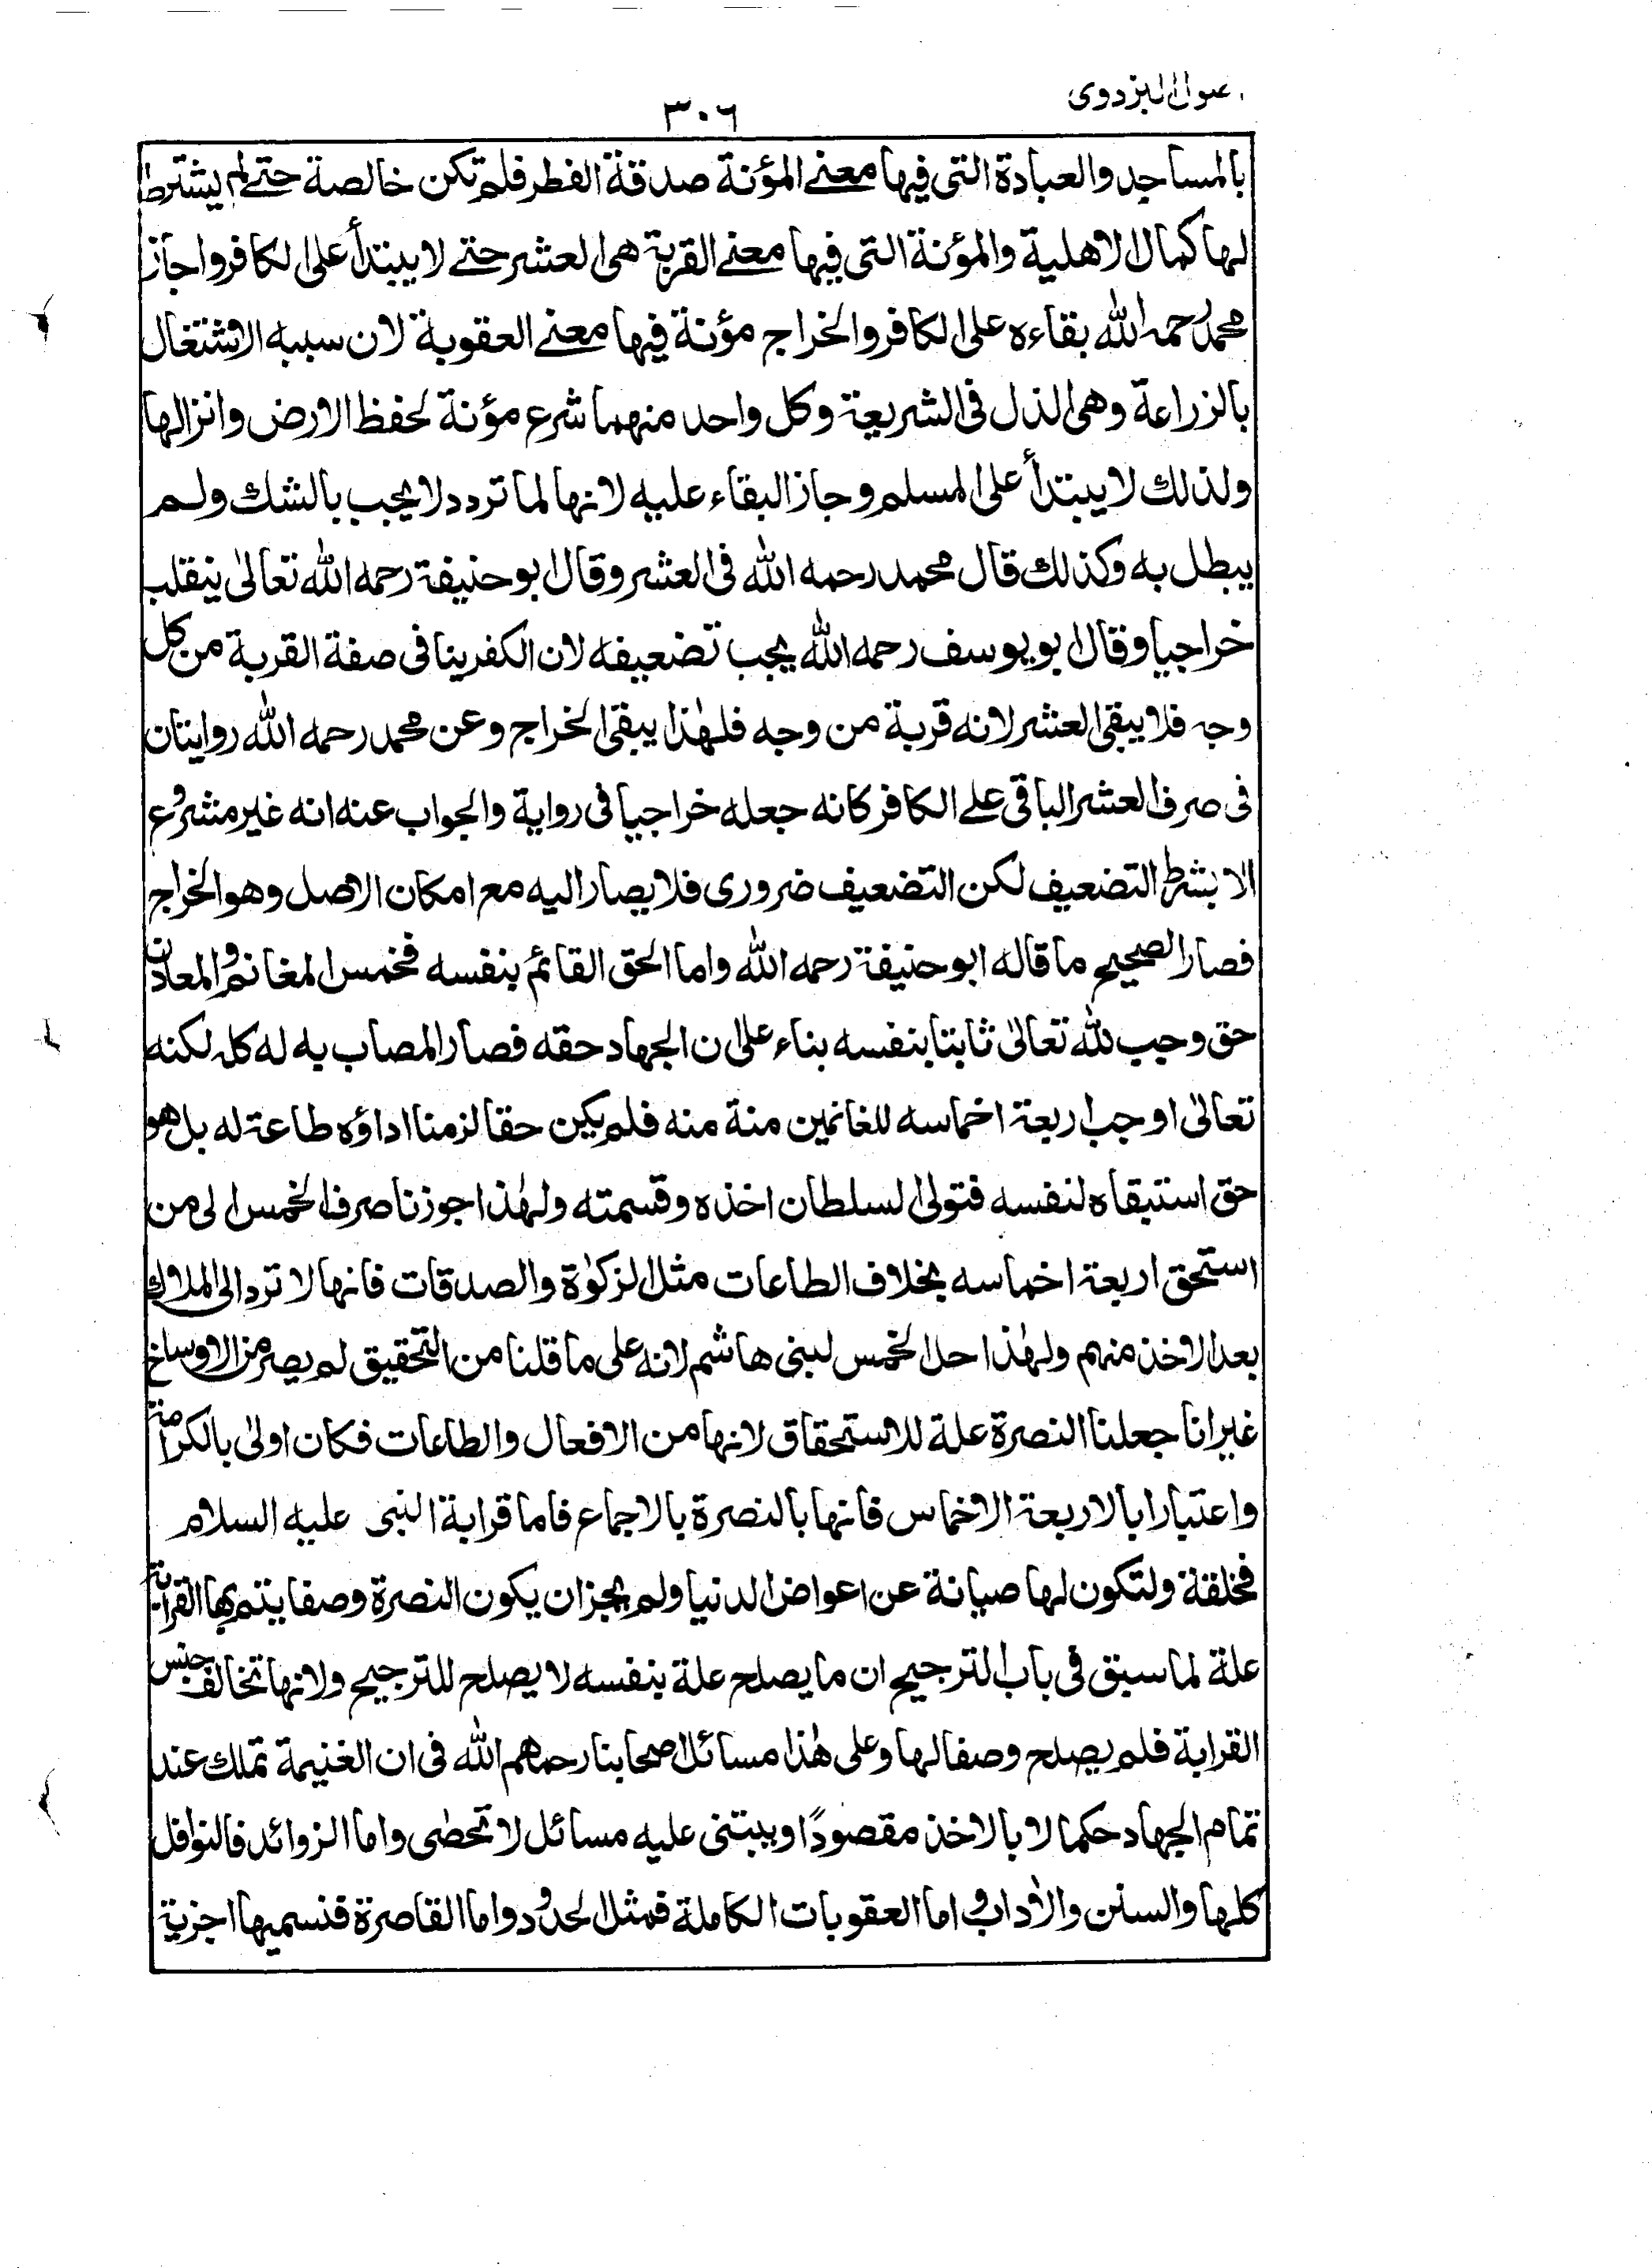 اصول البزدوی
٣٠٦
بالمساجد والعبادة التی فیها معنے المؤنة صدقة الفطر فلم تکن خالصة حتے لم یشترط
لها کمال الاهلیة والمؤنة التی فیها معنے القربة هی العشر حتے لا یبتدأ علی الکافر واجاز
محمد رحمه الله بقاءه علی الکافر والخراج مؤنة فیها معنے العقوبة لان سببه الاشتغال
بالزراعة وهی الذل فی الشریعة وکل واحد منهما شرع مؤنة لحفظ الارض وانزالها
ولذلك لا یبتدأ علی المسلم وجاز البقاء علیه لانها لما تردد لا یجب بالشك ولم
یبطل به وکذلك قال محمد رحمه الله فی العشر وقال ابو حنیفة رحمه الله تعالیٰ ینقلب
خراجیا وقال ابو یوسف رحمه الله یجب تضعیفه لان الکفر ینافی صفة القربة من کل
وجه فلا یبقی العشر لانه قربة من وجه فلهٰذا یبقی الخراج وعن محمد رحمه الله روایتان
فی صرف العشر الباقی علے الکافر کانه جعله خراجیا فی روایة والجواب عنه انه غیر مشروع
الا بشرط التضعیف لکن التضعیف ضروری فلا یصار الیه مع امکان الاصل وهو الخراج
فصار الصحیح ما قاله ابو حنیفة رحمه الله واما الحق القائم بنفسه فخمس المغانم والمعادن
حق وجب لله تعالیٰ ثابتا بنفسه بناء علی ان الجهاد حقه فصار المصاب به له کله لکنه
تعالیٰ اوجب اربعة اخماسه للغانمین منة منه فلم یکن حقا لزمنا اداؤه طاعة له بل هو
حق استبقاه لنفسه فتولی السلطان اخذه وقسمته ولهٰذا جوزنا صرف الخمس الی من
استحق اربعة اخماسه بخلاف الطاعات مثل الزکوٰة والصدقات فانها لا ترد الی الملاك
بعد الاخذ منهم ولهٰذا حل الخمس لبنی هاشم لانه علی ما قلنا من التحقیق لم یصر من الاوساخ
غیر انا جعلنا النصرة علة للاستحقاق لانها من الافعال والطاعات فکان اولیٰ بالکرامة
واعتبارا بالاربعة الاخماس فانها بالنصرة بالاجماع فاما قرابة النبی علیه السلام
فخلقة ولتکون لها صیانة عن اعواض الدنیا ولم یجز ان یکون النصرة وصفا یتم بها القرابة
علة لما سبق فی باب الترجیح ان ما یصلح علة بنفسه لا یصلح للترجیح ولانها تخالف جنس
القرابة فلم یصلح وصفا لها وعلی هٰذا مسائل اصحابنا رحمهم الله فی ان الغنیمة تملك عند
تمام الجهاد حکما لا بالاخذ مقصودًا ویبتنی علیه مسائل لا تحصٰی واما الزوائد فالنوافل
کلها والسنن والاٰداب واما العقوبات الکاملة فمثل الحدود واما القاصرة فنسمیها اجزیة